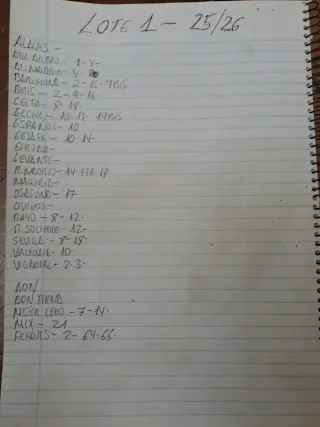 LOTE 1 - 25/26
ALAVES -
ATH. BILBAO - 1-4-
AT. MADRID - 4-
BARCELONA - 2-15-7BIS
BETIS - 2-9-16-
CELTA - 8-18-
ELCHE - 10-13-
ESPAÑOL - 10
GETAFE - 10-14-
GIRONA -
LEVANTE -
R. MADRID - 14-
MALLORCA -
OSASUNA - 17-
OVIEDO -
RAYO - 8-12-
R. SOCIEDAD - 12-
SEVILLA - 8-18-
VALENCIA - 10-
VILLARREAL - 2-3-
ADN
ADN FIERA
MEJOR CERO - 7-14-
MIX - 21
FICHAJES - 2-64-66-